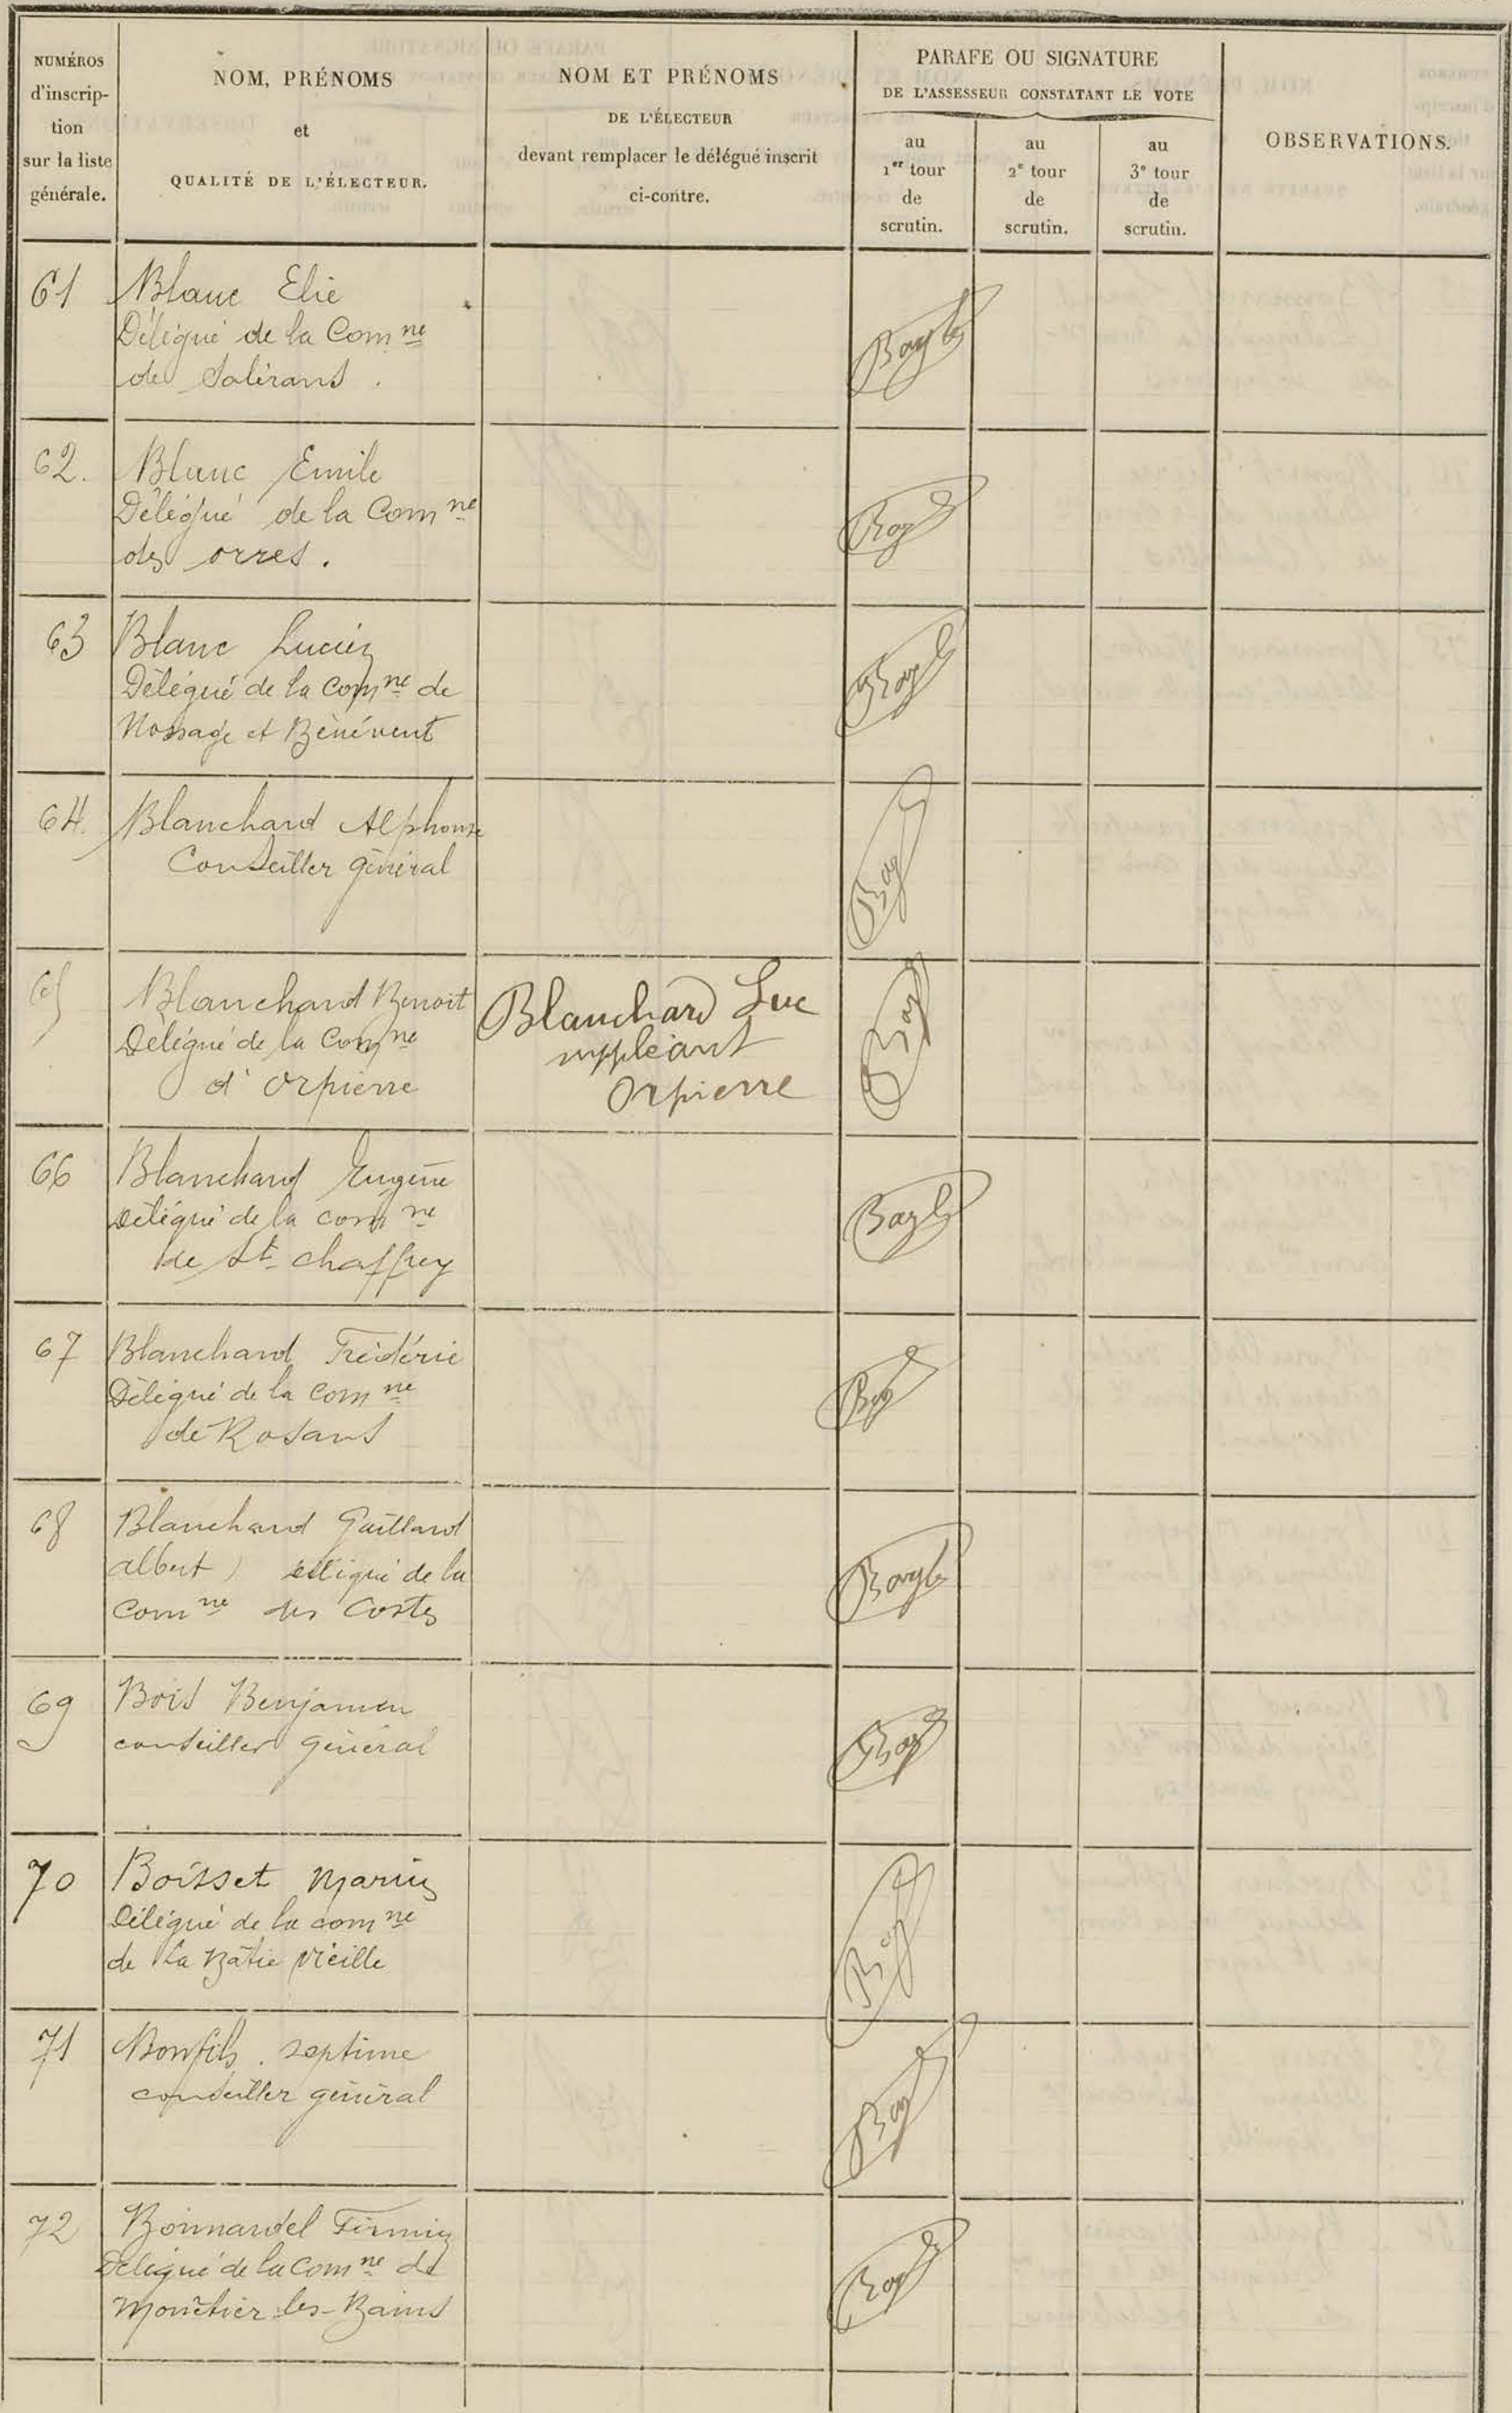 NUMÉROS
d'inscrip-
tion
sur la liste
générale.
NOM, PRÉNOMS
et
QUALITÉ DE L'ÉLECTEUR.
NOM ET PRÉNOMS
DE L'ÉLECTEUR
devant remplacer le délégué inscrit
ci-contre.
PARAFE OU SIGNATURE
DE L'ASSESSEUR CONSTATANT LE VOTE
au
1er tour
de
scrutin.
au
2e tour
de
scrutin.
au
3e tour
de
scrutin.
OBSERVATIONS.
61 Blanc Elie
Délégué de la Comne
de Salérans.
Bayle
62. Blanc Emile
Délégué de la Comne
des orres.
63 Blanc Lucien
Délégué de la Comne de
Nossage et Bénévent
Bayle
64. Blanchard Alphonse
Conseiller général
65 Blanchard Benoit
Délégué de la Comne
d'Orpierre
Blanchard Luc
suppléant
Orpierre
66 Blanchard Eugène
Délégué de la comne
de St chaffrey
Bayle
67 Blanchard Frédéric
Délégué de la Comne
de Rosans
68 Blanchard Gaillard
albert) délégué de la
Comne des Costes
Bayle
69 Bois Benjamin
conseiller général
70 Boisset Marius
Délégué de la comne
de La Bâtie vieille
71 Bonfils. Septime
conseiller général
72 Bonnardel Firmin
Délégué de la Comne de
Monêtier les-Bains